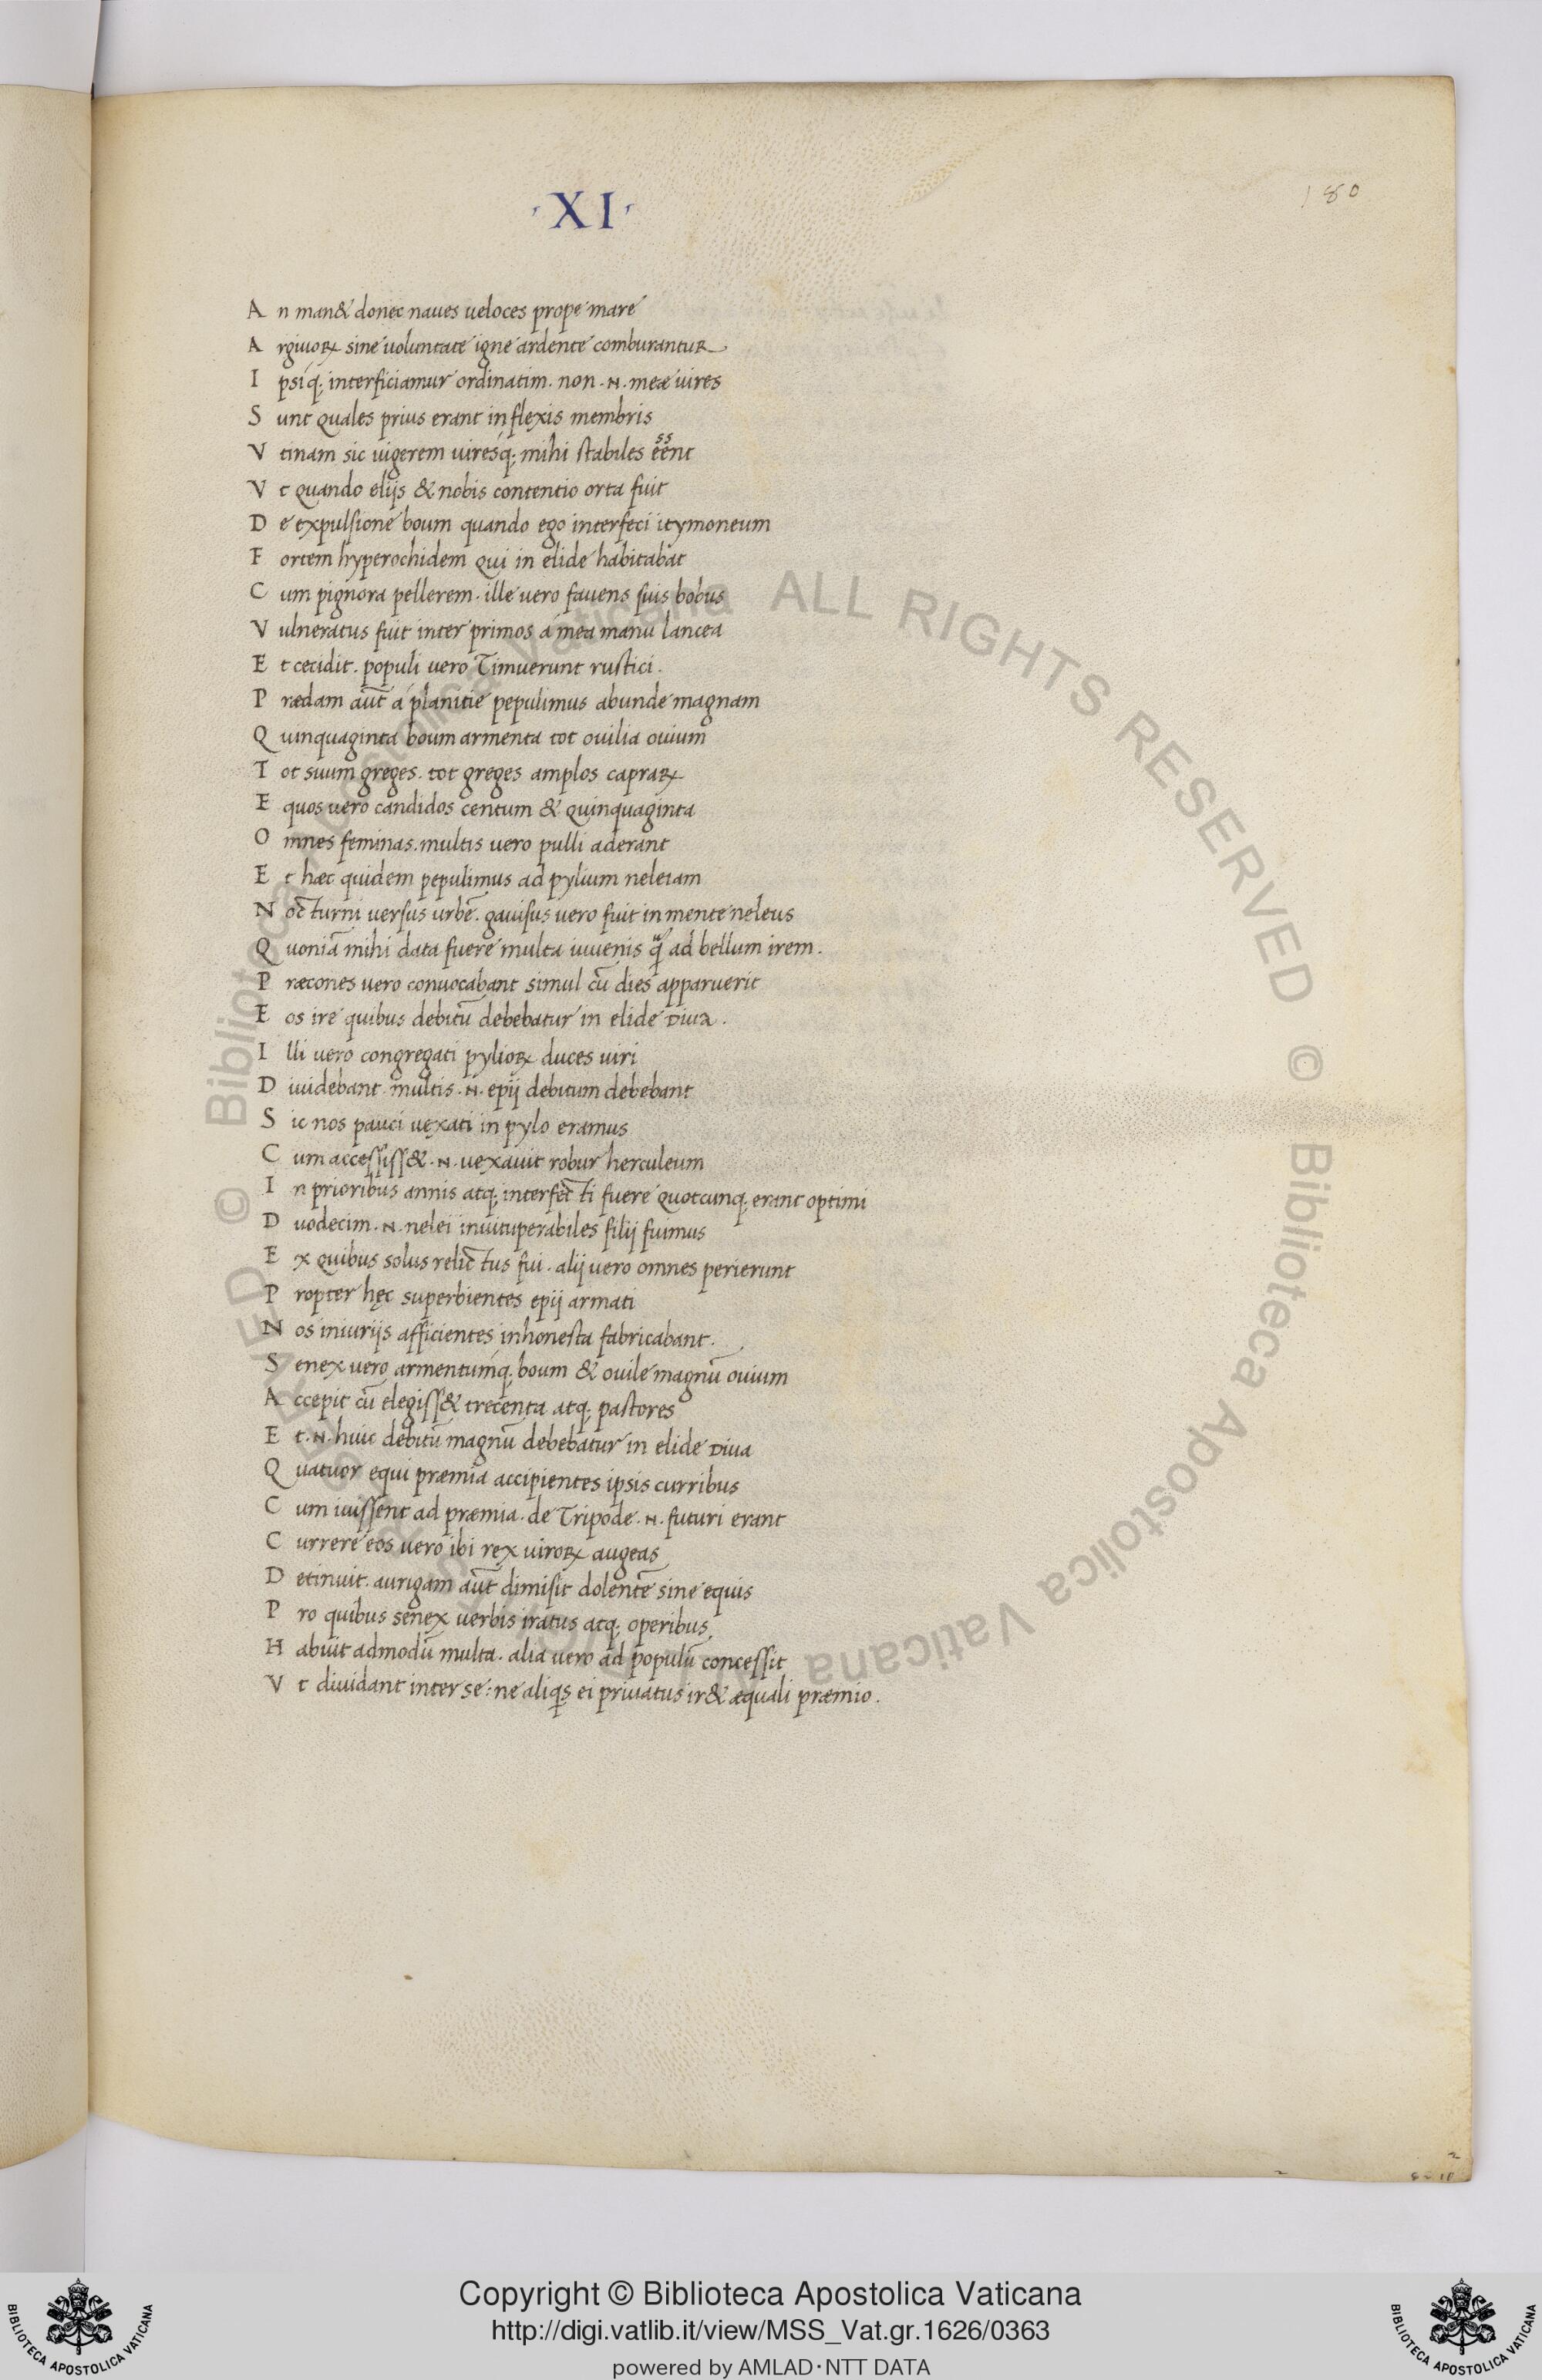 ·XI·
180
An man& donec naues ueloces prope mare
Argiuoꝝ sine uoluntate igne ardente comburantur
Ipsiq; interficiamur ordinatim. non .n. meæ uires
Sunt quales prius erant in flexis membris
Vtinam sic uigerem uiresq; mihi stabiles eēnt
Vt quando elijs & nobis contentio orta fuit
De expulsione boum quando ego interfeci itymoneum
Fortem hyperochidem qui in elide habitabat
Cum pignora pellerem. ille uero fauens suis bobus
Vulneratus fuit inter primos a mea manu lancea
Et cecidit. populi uero Timuerunt rustici.
Prædam aūt a planitie pepulimus abunde magnam
Quinquaginta boum armenta tot ouilia ouium
Tot suum greges. tot greges amplos capraꝝ
Equos uero candidos centum & quinquaginta
Omnes feminas. multis uero pulli aderant
Et hæc quidem pepulimus ad pylium neleiam
Nocturni uersus urbē. gauisus uero fuit in mente neleus
Quoniā mihi data fuere multa iuuenis ad bellum irem.
Præcones uero conuocabant simul cū dies apparuerit
Eos ire quibus debitū debebatur in elide Diua.
Illi uero congregati pylioꝝ duces uiri
Diuidebant. multis .n. epij debitum debebant
Sic nos pauci uexati in pylo eramus
Cum accessiss& .n. uexauit robur herculeum
In prioribus annis atq; interfecti fuere quotcunq; erant optimi
Duodecim .n. nelei inuituperabiles filij fuimus
Ex quibus solus relictus fui. alij uero omnes perierunt
Propter hęc superbientes epij armati
Nos iniurijs afficientes inhonesta fabricabant.
Senex uero armentumq; boum & ouile magnū ouium
Accepit cū elegiss& trecenta atq; pastores
Et .n. huic debitū magnū debebatur in elide Diua
Quatuor equi præmia accipientes ipsis curribus
Cum iuissent ad præmia. de Tripode .n. futuri erant
Currere eos uero ibi rex uiroꝝ augeas
Detinuit. aurigam aūt dimisit dolentē sine equis
Pro quibus senex uerbis iratus atq; operibus
Habuit admodū multa. alia uero ad populū concessit
Vt diuidant inter se: ne aliqs ei priuatus ir& æquali præmio.
© Biblioteca Apostolica Vaticana ALL RIGHTS RESERVED © Biblioteca Apostolica Vaticana ALL RIGHTS RESERVED
Copyright © Biblioteca Apostolica Vaticana
http://digi.vatlib.it/view/MSS_Vat.gr.1626/0363
powered by AMLAD·NTT DATA
BIBLIOTECA APOSTOLICA VATICANA
BIBLIOTECA APOSTOLICA VATICANA